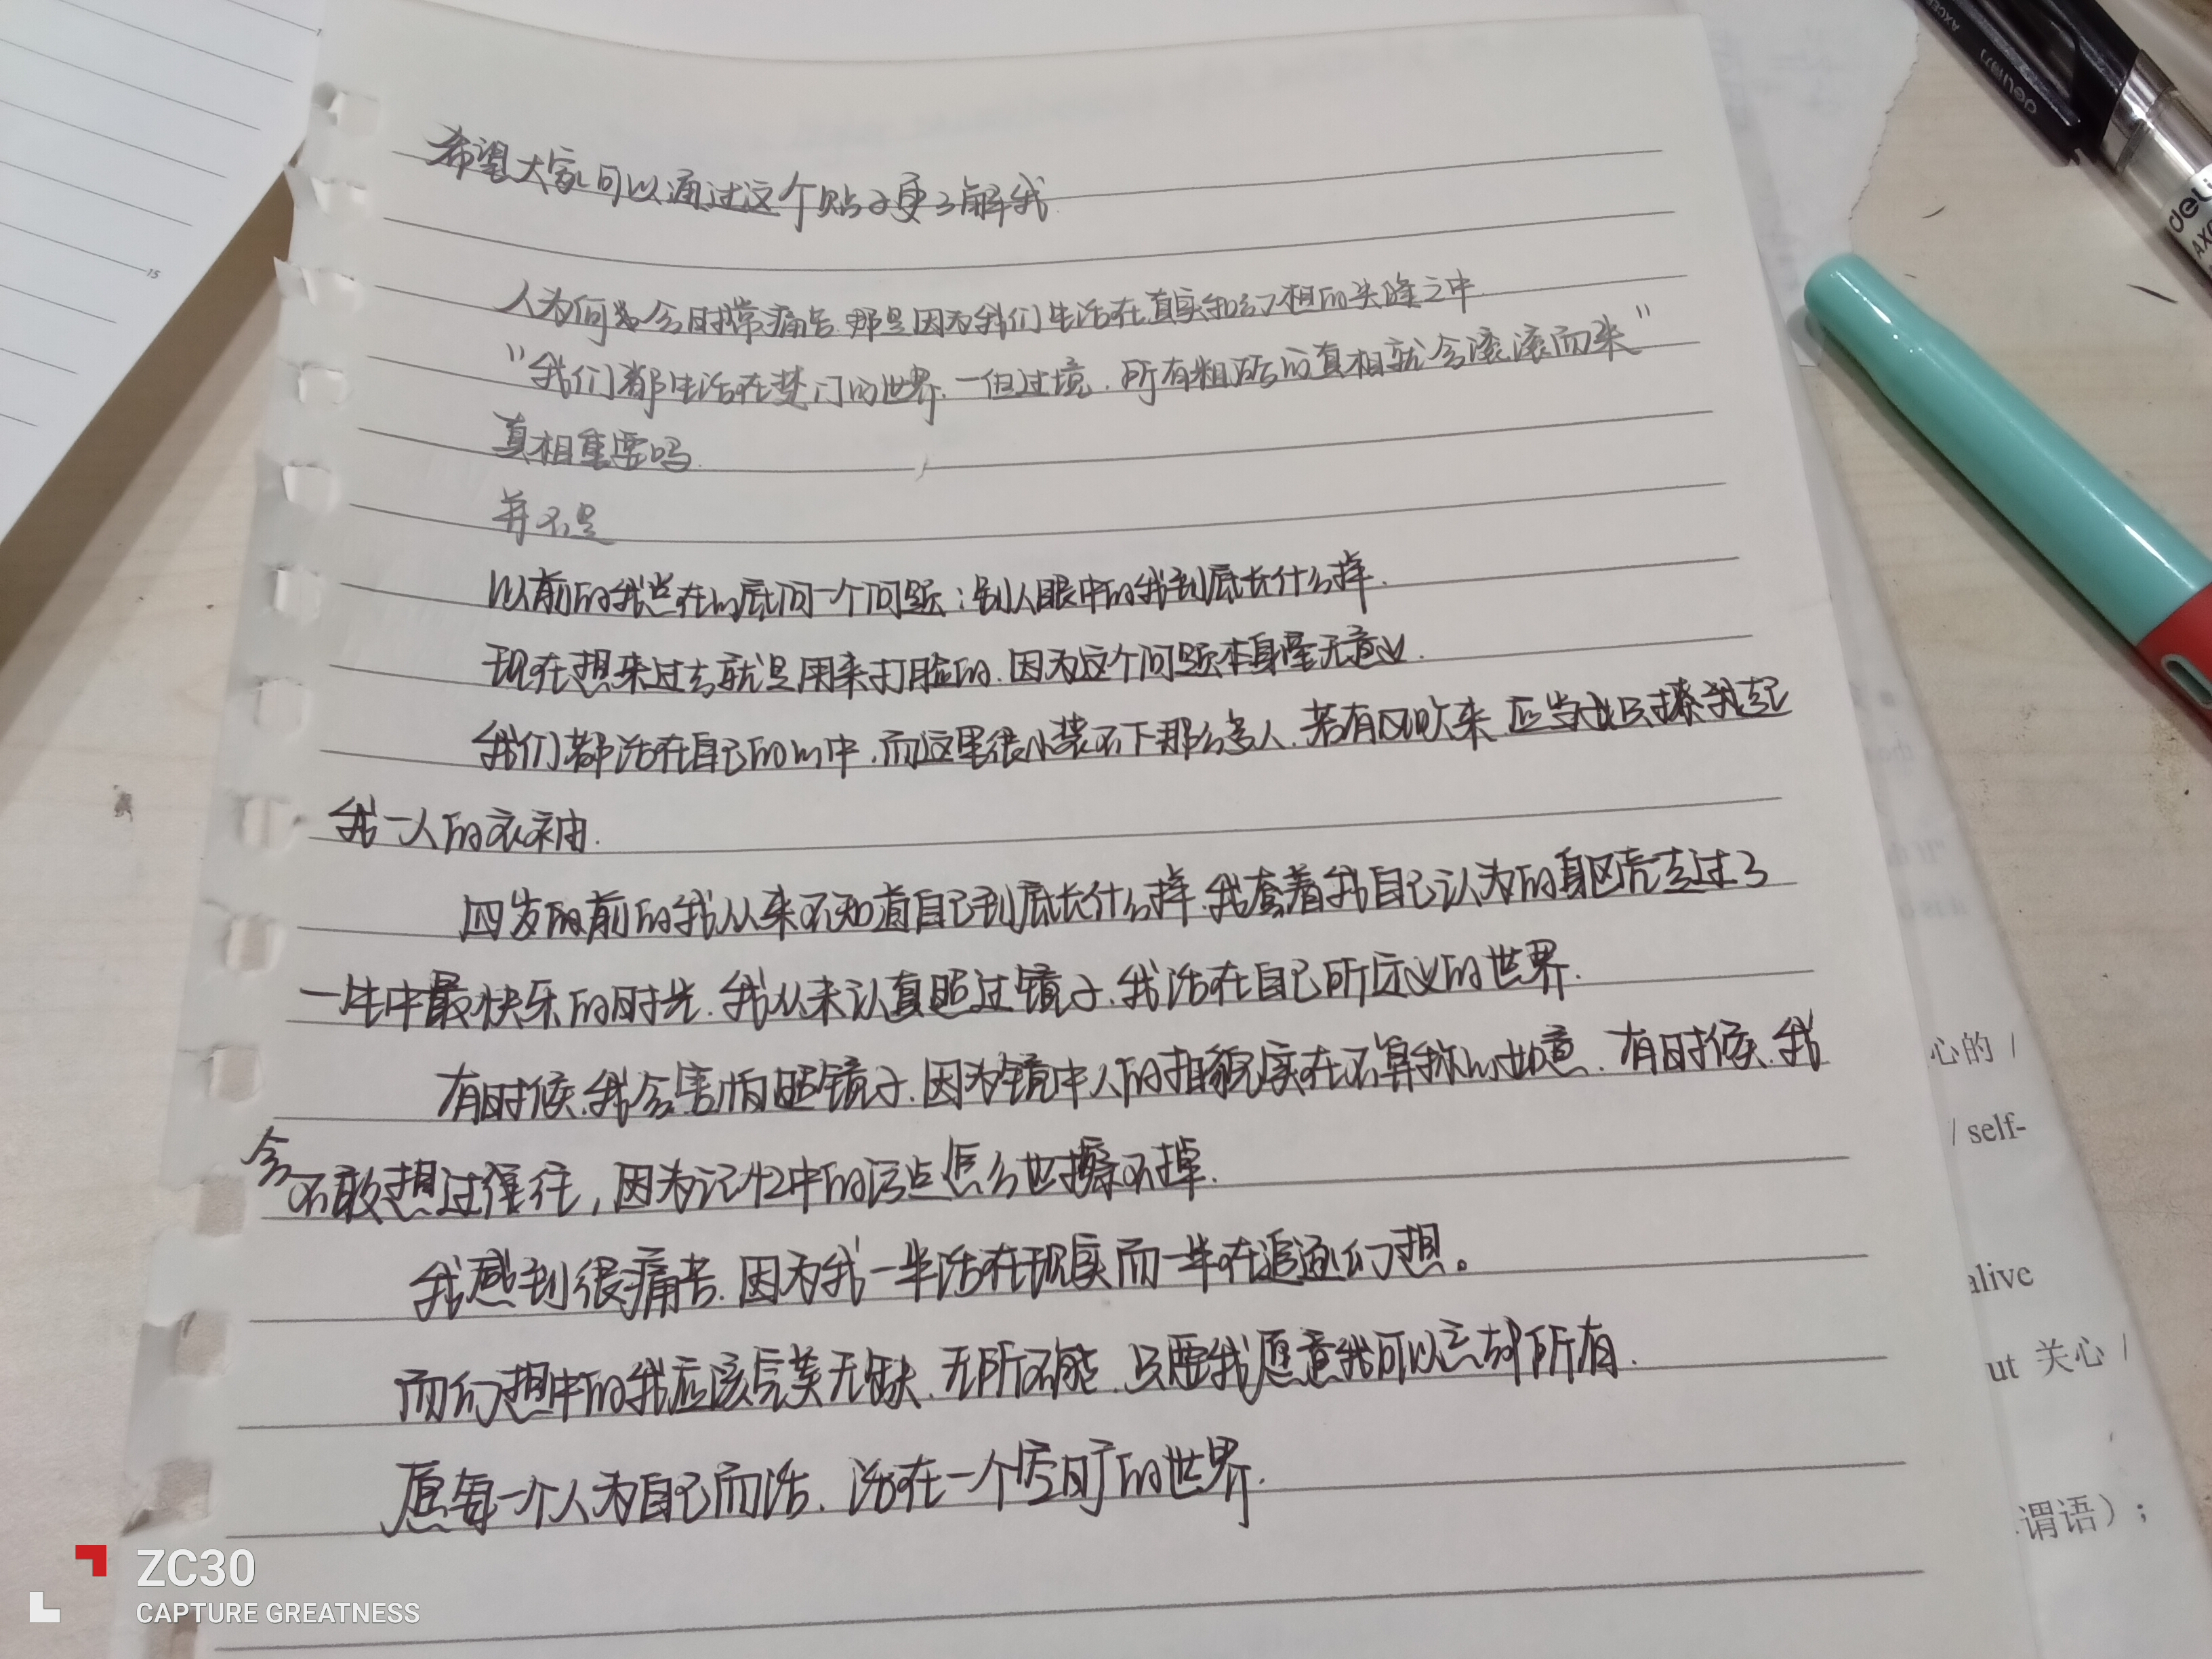 希望大家可以通过这个贴子更了解我
人为何总会时常痛苦.那是因为我们生活在真实和幻想的夹缝之中.
"我们都生活在楚门的世界.一但过境.所有粗砺的真相就会滚滚而来"
真相重要吗.
并不是
以前的我总在心底问一个问题:别人眼中的我到底长什么样.
现在想来过去就是用来打脸的.因为这个问题本身毫无意义.
我们都活在自己的心中.而这里很小装不下那么多人.若有风吹来 应当也只撩我起
我一人的衣袖.
四岁的前的我从来不知道自己到底长什么样.我套着我自己认为的身躯壳去过了
一生中最快乐的时光.我从未认真照过镜子.我活在自己所定义的世界.
有时候.我会害怕照镜子.因为镜中人的相貌实在不算称心如意.有时候.我
会不敢想过往,因为记忆中的污点怎么也擦不掉.
我感到很痛苦.因为我一半活在现实而一半在追逐幻想。
而幻想中的我应该完美无缺.无所不能.只要我愿意我可以忘却所有.
愿每一个人为自己而活.活在一个的世界.
15
deli
AXCE
deli
AXC
心的 /
/ self-
alive
ut 关心 /
谓语）;
ZC30
CAPTURE GREATNESS